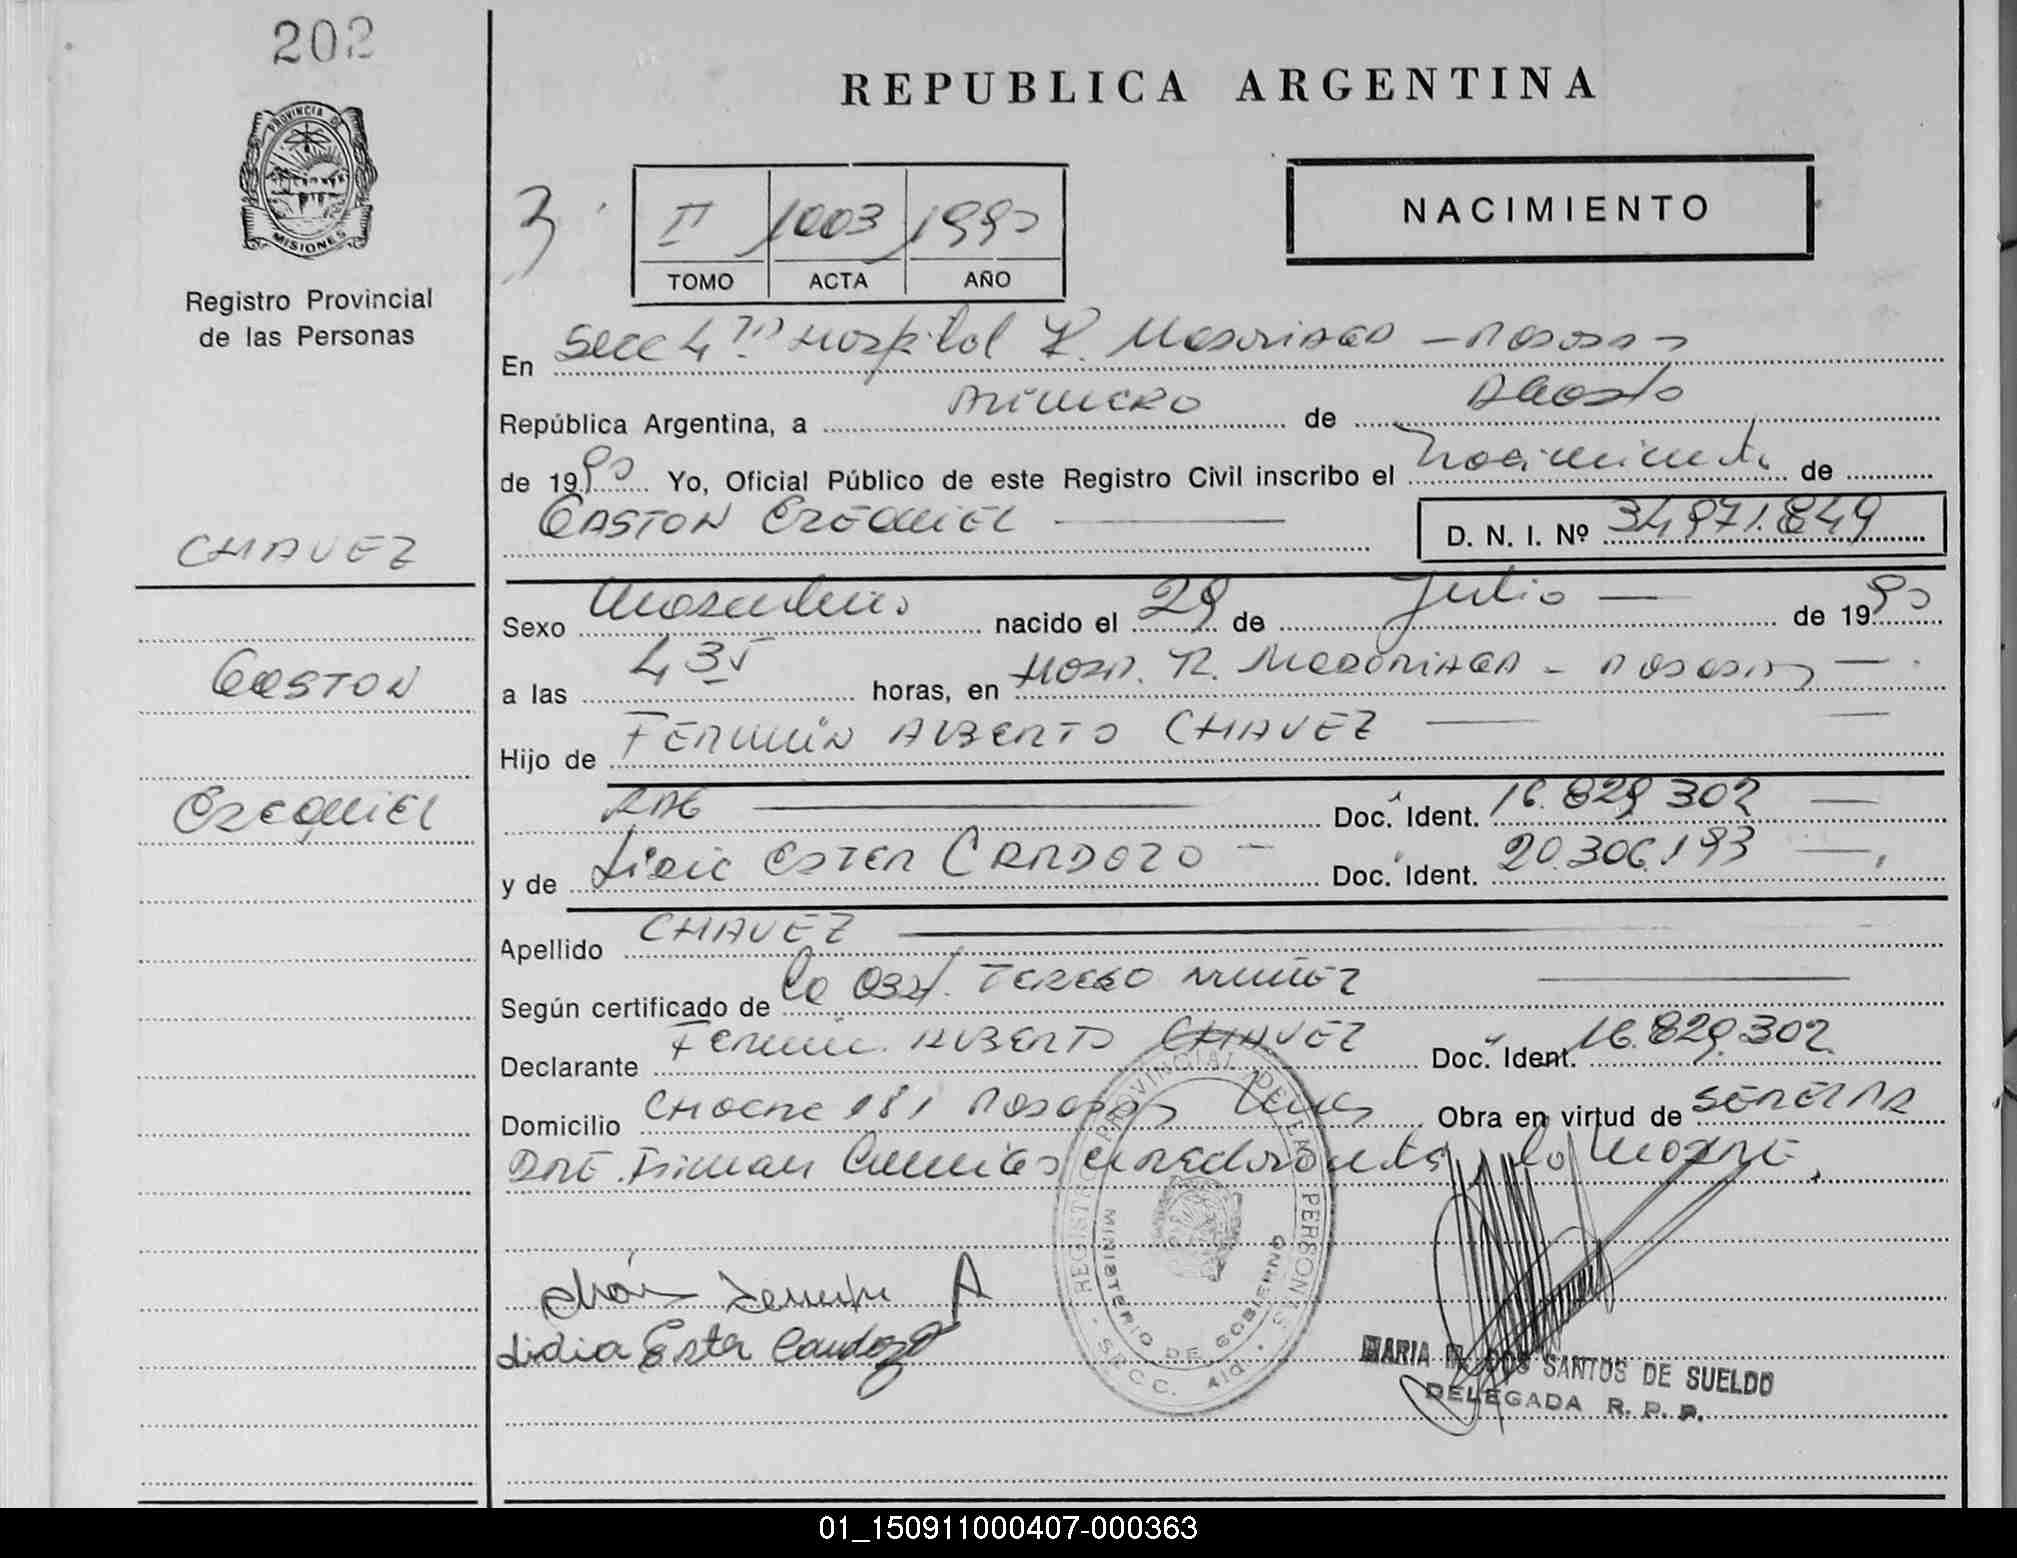 202
PROVINCIA DE
MISIONES
Registro Provincial
de las Personas
CHAVEZ
GASTON
EZEQUIEL
REPUBLICA ARGENTINA
NACIMIENTO
3
II 1003 1990
TOMO ACTA AÑO
En Secc 4ta Hospital R. Madariaga - Posadas
República Argentina, a Primero de Agosto
de 1990 Yo, Oficial Público de este Registro Civil inscribo el Nacimiento de
GASTON EZEQUIEL
D. N. I. Nº 34971.849
Sexo Masculino nacido el 29 de Julio de 1990
a las 4 35 horas, en Hosp. R. Madariaga - Posadas
Hijo de FERMIN ALBERTO CHAVEZ
ARG Doc. Ident. 16.829.302
y de Lidia ESTER CARDOZO Doc. Ident. 20.306.193
Apellido CHAVEZ
Según certificado de la Obst. TERESA NUÑEZ
Declarante Fermin ALBERTO CHAVEZ Doc. Ident. 16.829.302
Domicilio 181 Posadas Obra en virtud de SER EL PA
DRE. Firman la Madre.
A
Lidia Ester Cardozo
REGISTRO PROVINCIAL DE LAS PERSONAS
MINISTERIO DE GOBIERNO
SECC. 4ta.
MARIA DOS SANTOS DE SUELDO
DELEGADA R. P. P.
01_150911000407-000363